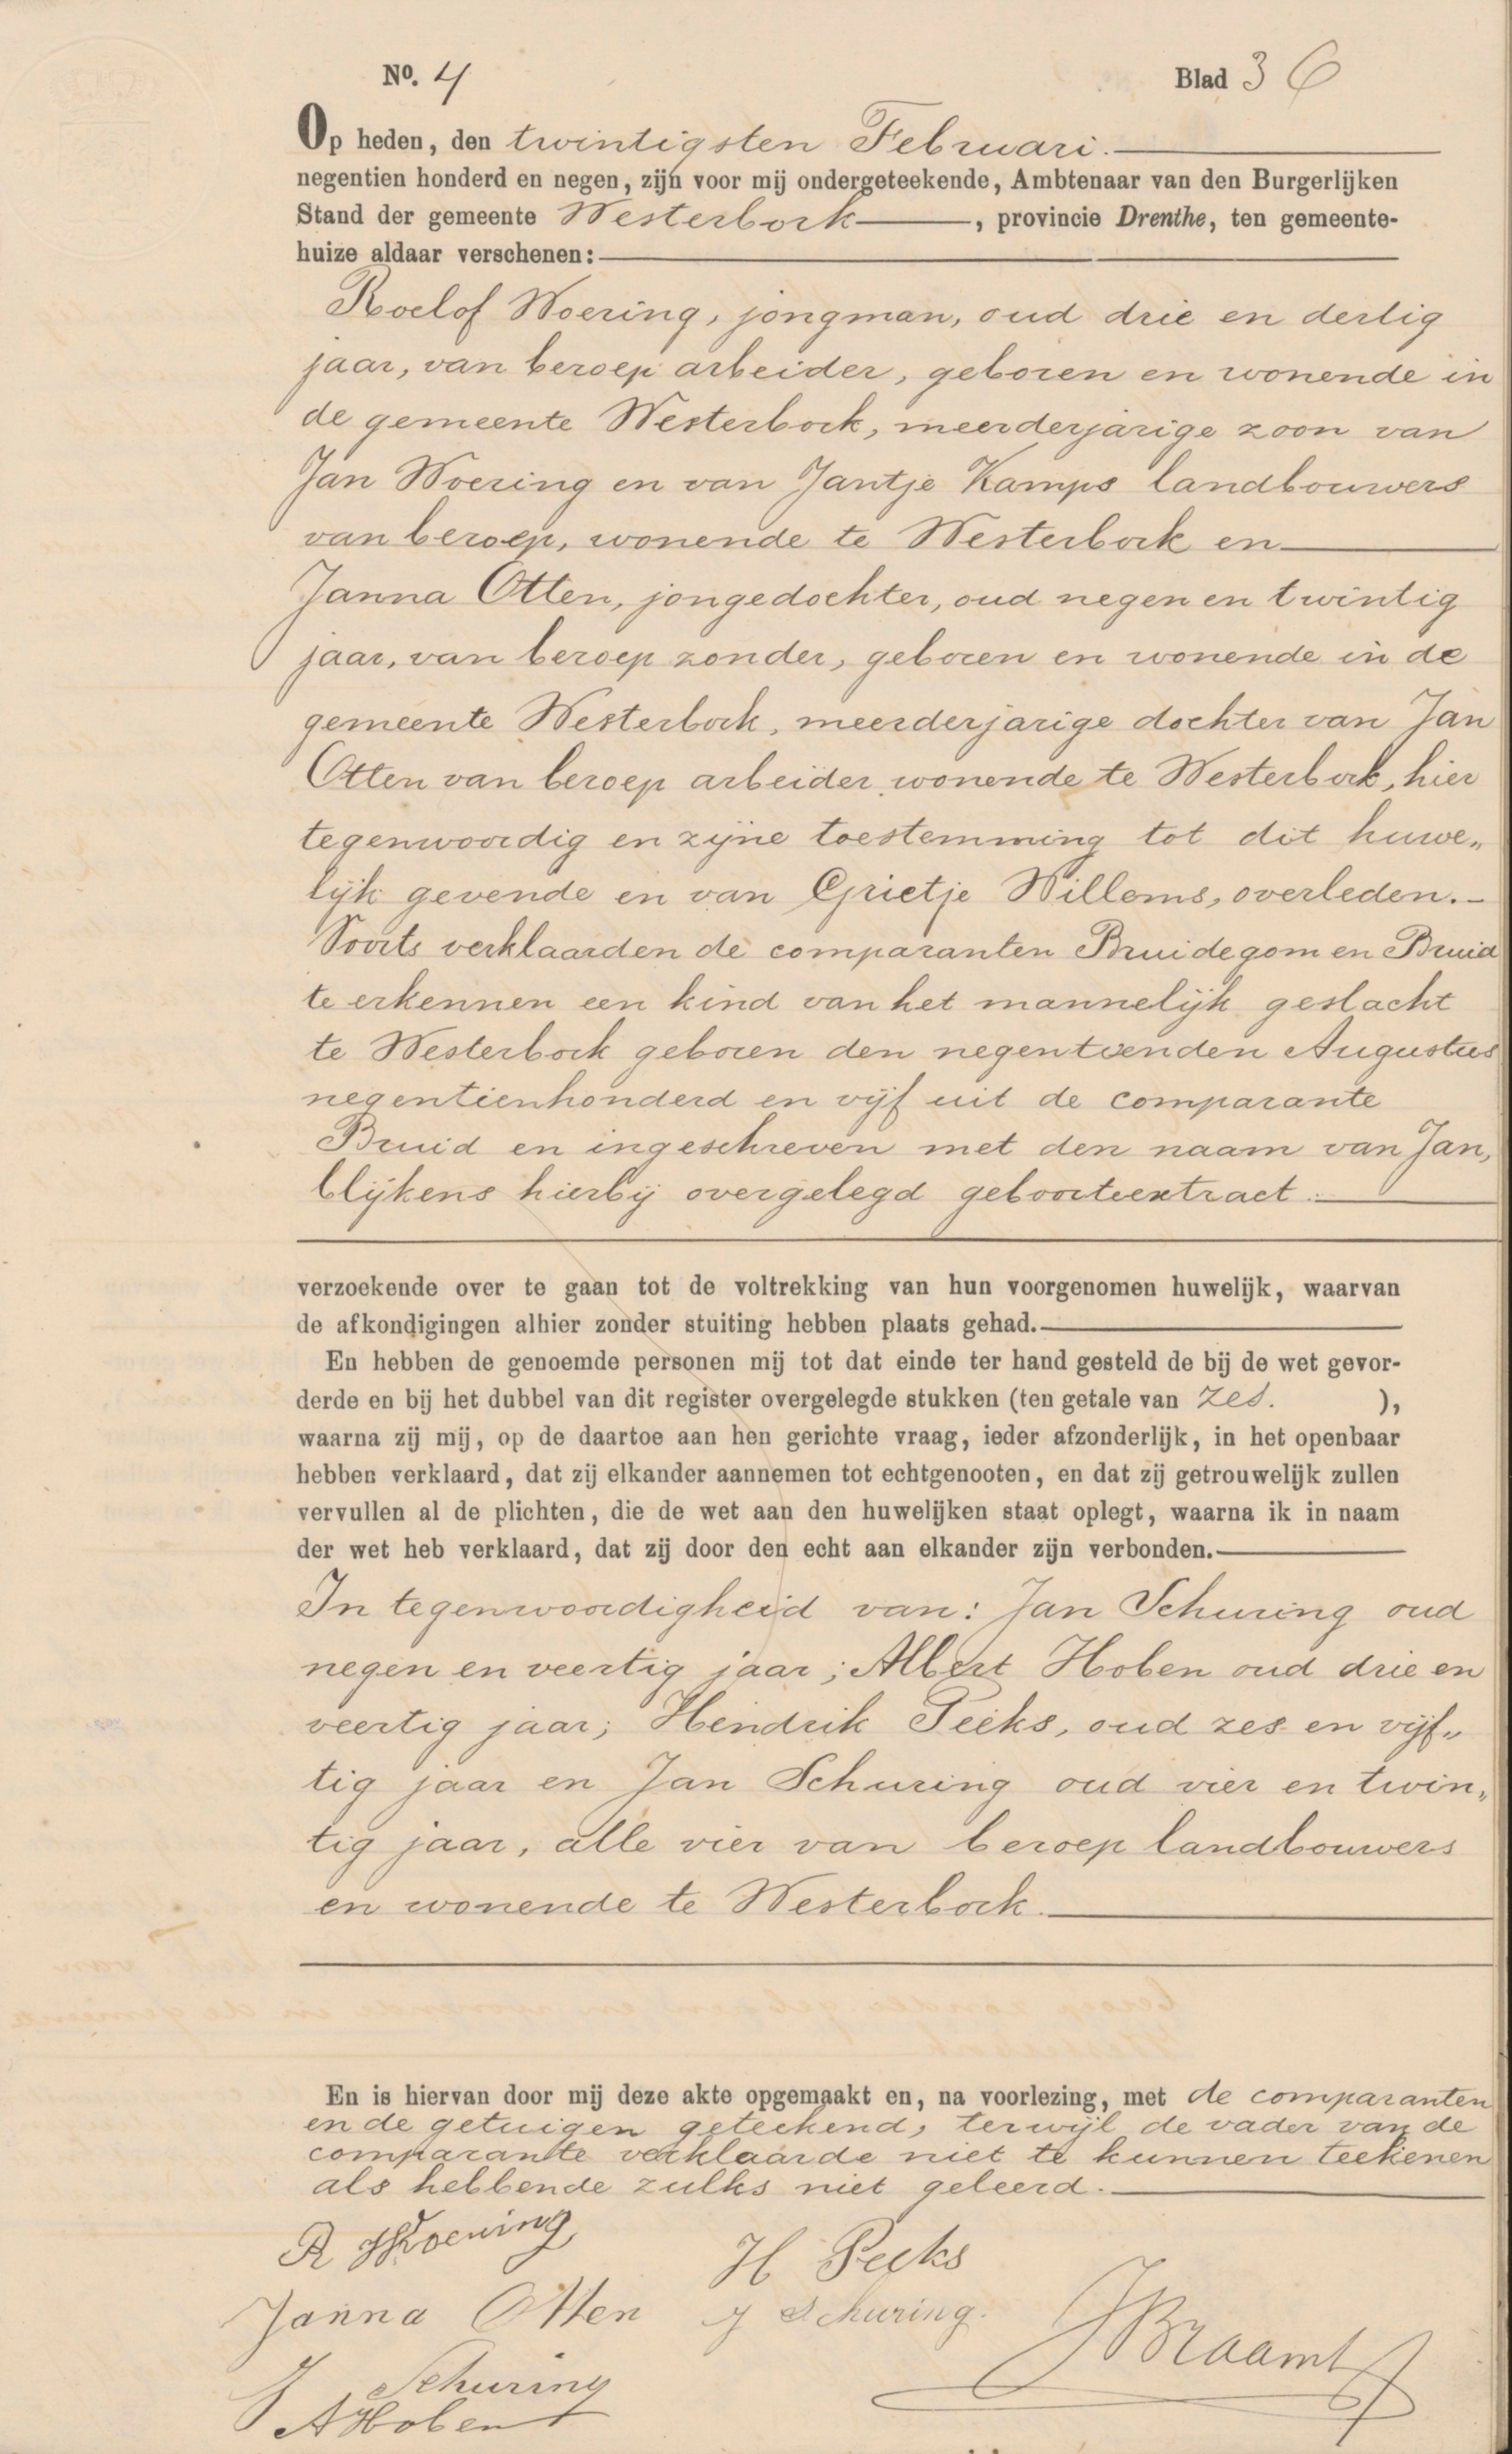 No. 4 Blad 36
Op heden, den twintigsten Februari.
negentien honderd en negen, zijn voor mij ondergeteekende, Ambtenaar van den Burgerlijken
Stand der gemeente Westerbork, provincie Drenthe, ten gemeente-
huize aldaar verschenen:
Roelof Woering, jongman, oud drie en dertig
jaar, van beroep arbeider, geboren en wonende in
de gemeente Westerbork, meerderjarige zoon van
Jan Woering en van Jantje Kamps landbouwers
van beroep, wonende te Westerbork en
Janna Otten, jongedochter, oud negen en twintig
jaar, van beroep zonder, geboren en wonende in de
gemeente Westerbork, meerderjarige dochter van Jan
Otten van beroep arbeider, wonende te Westerbork, hier
tegenwoordig en zijne toestemming tot dit huwe„
lijk gevende en van Grietje Willems, overleden.
Voorts verklaarden de comparanten Bruidegom en Bruid
te erkennen een kind van het mannelijk geslacht
te Westerbork geboren den negentienden Augustus
negentienhonderd en vijf uit de comparante
Bruid en ingeschreven met den naam van Jan,
blijkens hierbij overgelegd geboorteextract.
verzoekende over te gaan tot de voltrekking van hun voorgenomen huwelijk, waarvan
de afkondigingen alhier zonder stuiting hebben plaats gehad.
En hebben de genoemde personen mij tot dat einde ter hand gesteld de bij de wet gevor-
derde en bij het dubbel van dit register overgelegde stukken (ten getale van zes. ),
waarna zij mij, op de daartoe aan hen gerichte vraag, ieder afzonderlijk, in het openbaar
hebben verklaard, dat zij elkander aannemen tot echtgenooten, en dat zij getrouwelijk zullen
vervullen al de plichten, die de wet aan den huwelijken staat oplegt, waarna ik in naam
der wet heb verklaard, dat zij door den echt aan elkander zijn verbonden.
In tegenwoordigheid van: Jan Schuring oud
negen en veertig jaar; Albert Hoben oud drie en
veertig jaar; Hendrik Peeks, oud zes en vijf„
tig jaar en Jan Schuring oud vier en twin„
tig jaar, alle vier van beroep landbouwers
en wonende te Westerbork.
En is hiervan door mij deze akte opgemaakt en, na voorlezing, met de comparanten
en de getuigen geteekend, terwijl de vader van de
comparante verklaarde niet te kunnen teekenen
als hebbende zulks niet geleerd.
R Woering
H Peeks
Janna Otten
J Schuring.
J Schuring
A Hoben